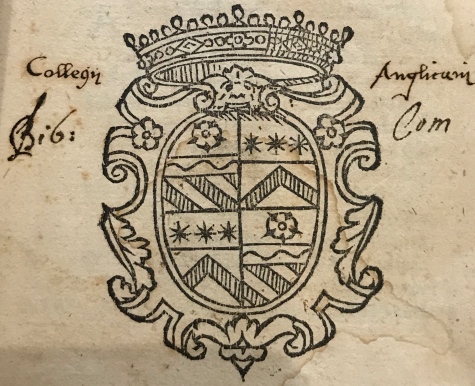 Collegij Anglicani
Bib: Com